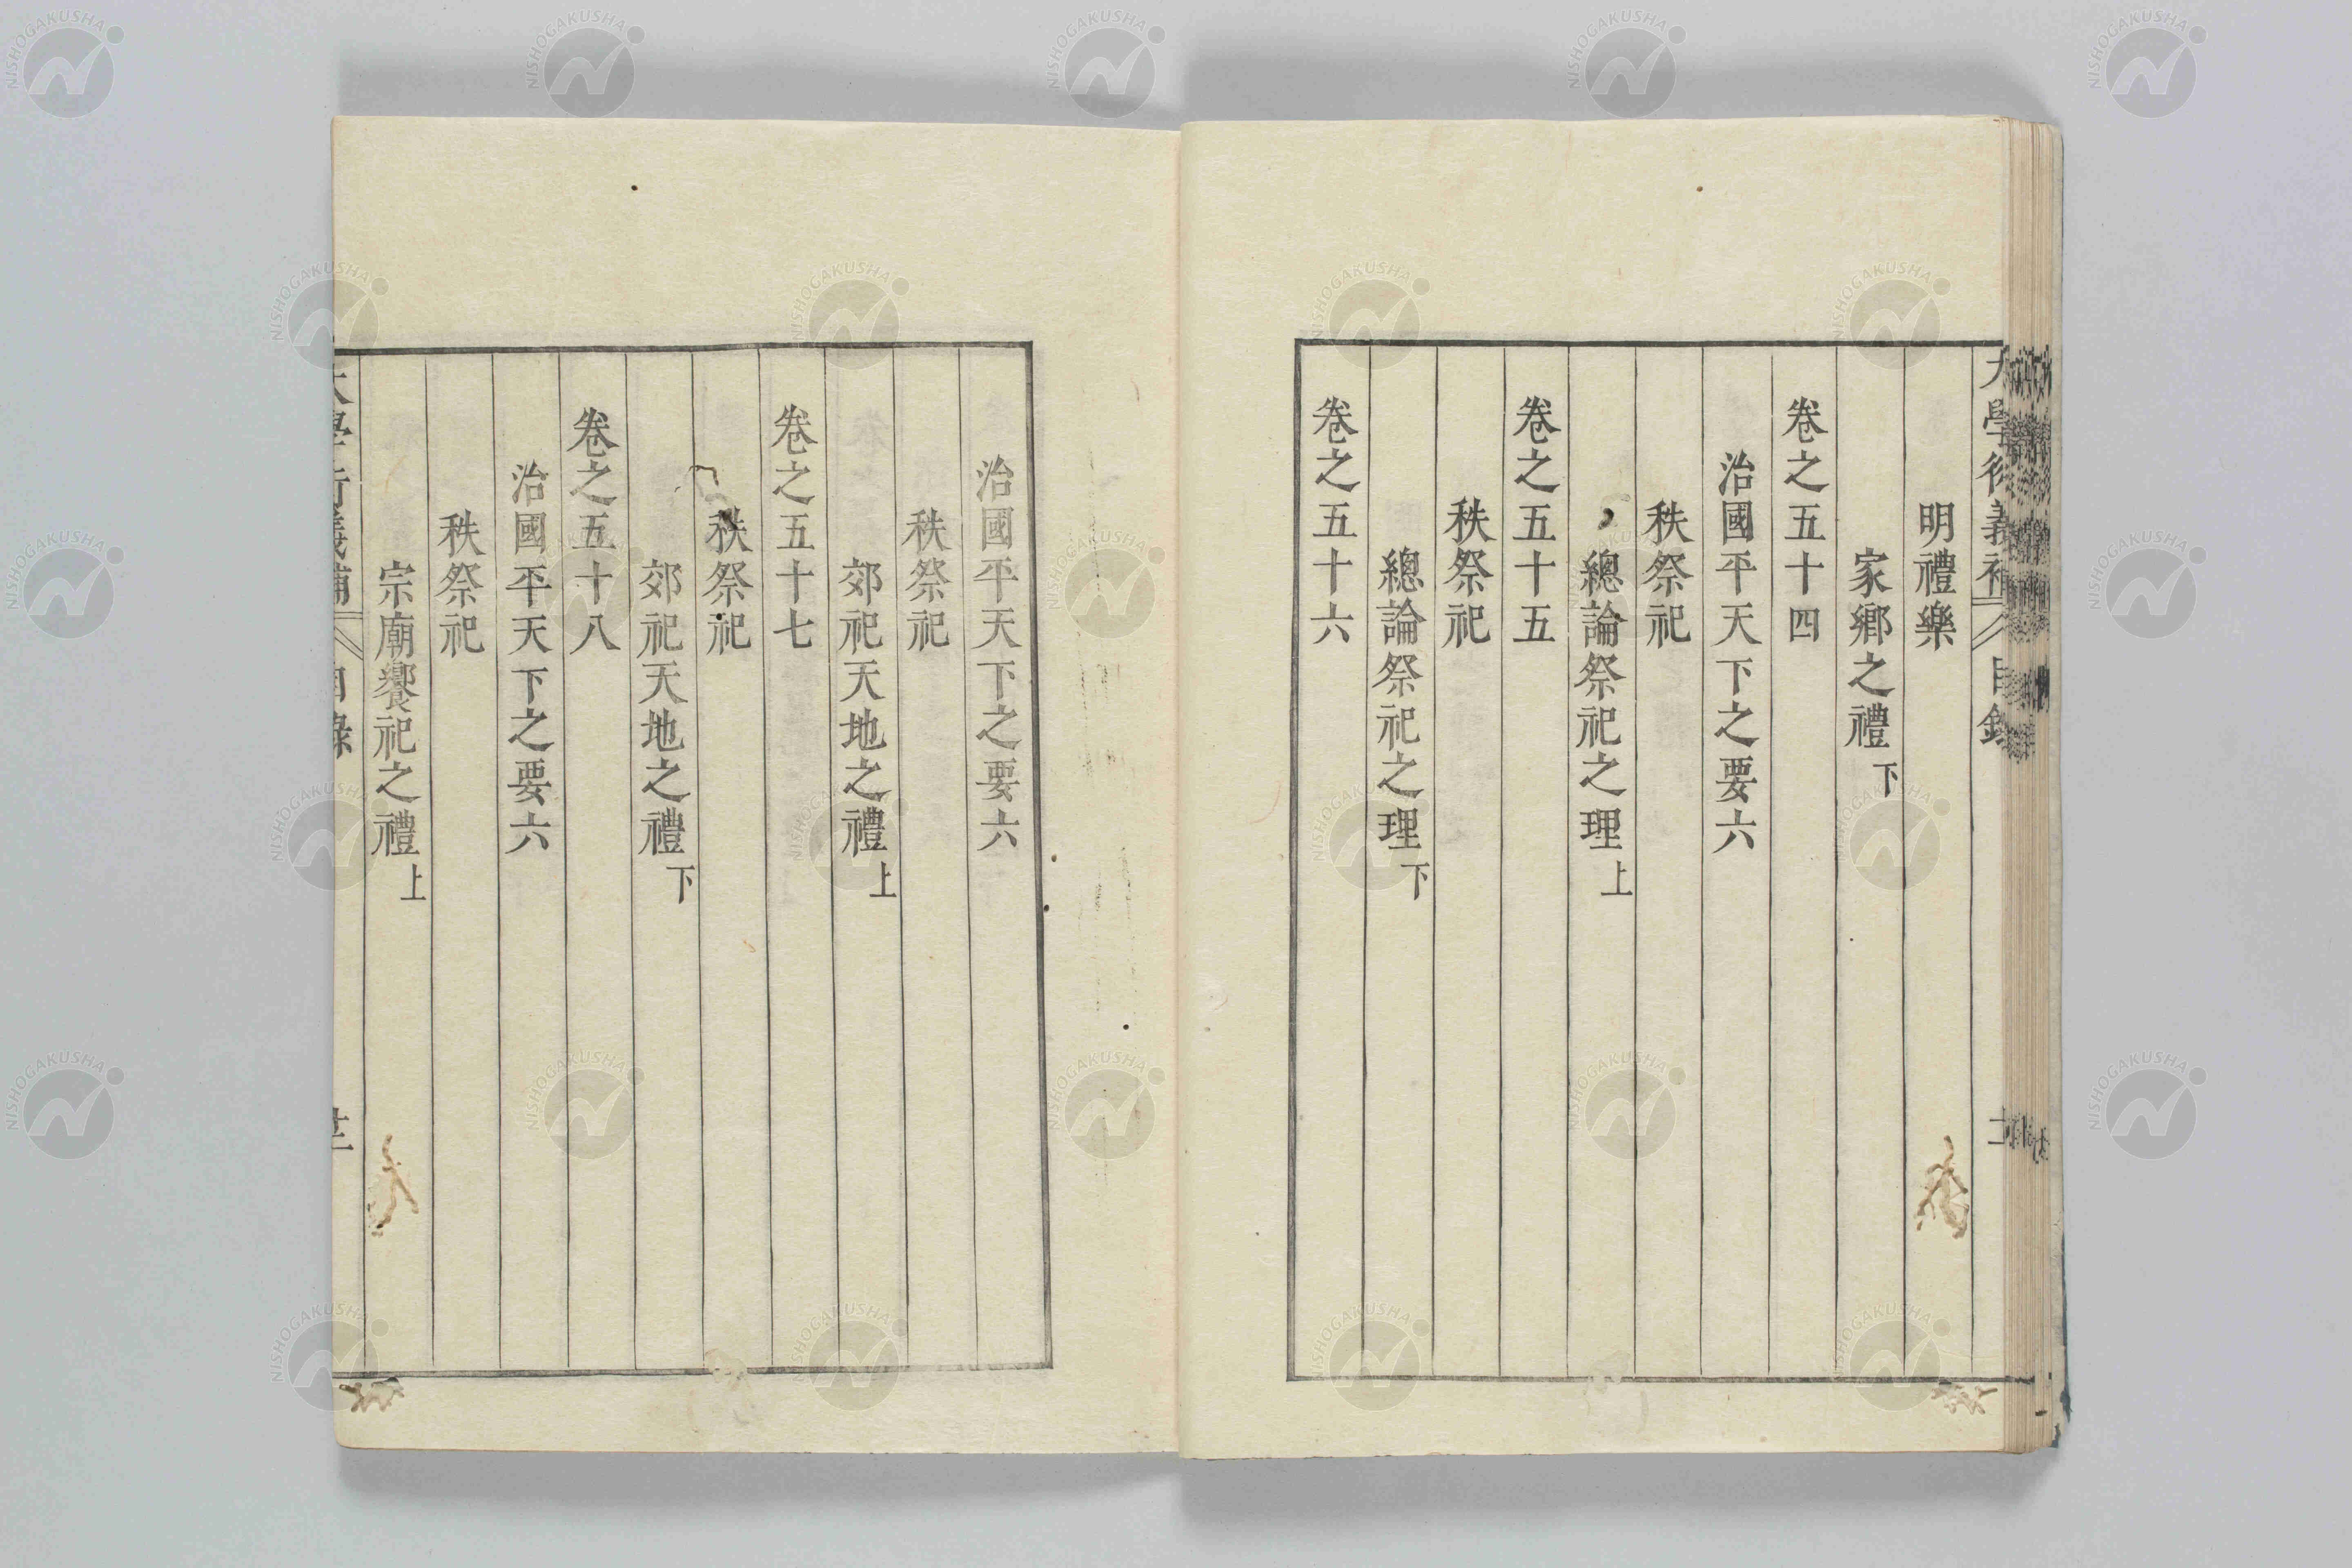 明禮樂
家鄉之禮下
卷之五十四
治國平天下之要六
秩祭祀
總論祭祀之理上
卷之五十五
秩祭祀
總論祭祀之理下
卷之五十六
治國平天下之要六
秩祭祀
郊祀天地之禮上
卷之五十七
秩祭祀
郊祀天地之禮下
卷之五十八
治國平天下之要六
秩祭祀
宗廟饗祀之禮上
NISHOGAKUSHA